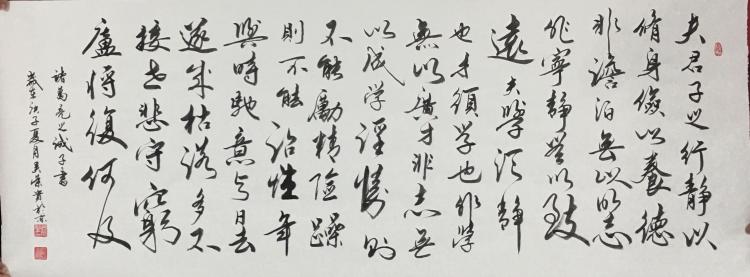 夫君子之行静以
脩身儉以養德
非澹泊无以明志
非寧静無以致
遠夫學须静
也才須学也非学
無以廣才非志無
以成学淫慢则
不能勵精險躁
則不能治性年
與時馳意与日去
遂成枯落多不
接世悲守窮
廬將復何及
諸葛亮之誡子書
歲在庚子夏月吴榮贵於京